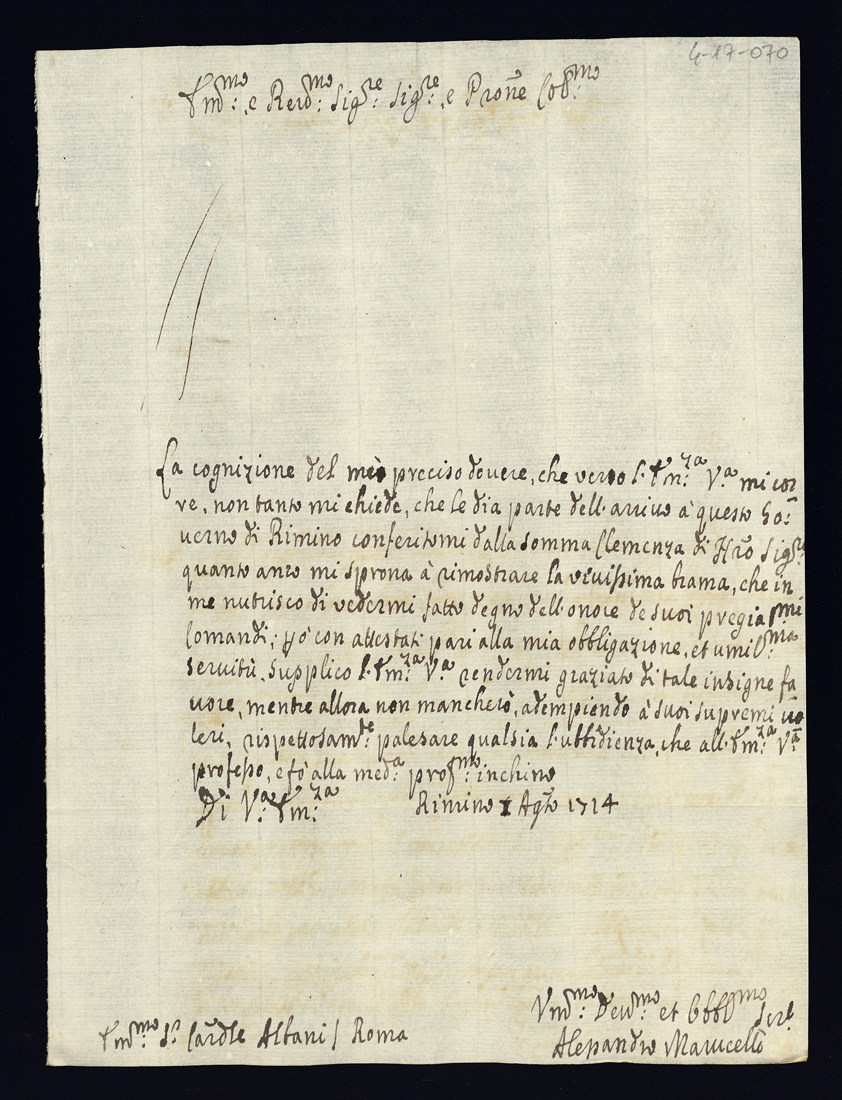 4-17-070
Em.mo, e Reud.mo Sig.re Sig.re, e Prone Col.mo
La cognizione del mio preciso douere, che verso l'Em.za V.a mi cor
re, non tanto mi chiede, che le dia parte dell'arriuo à questo Go:
uerno di Rimino conferitomi dalla somma Clemenza di Nro Sig.re
quanto anco mi sprona à rimostrare la viuissima brama, che in
me nutrisco di vedermi fatto degno dell'onore de suoi pregia.mi
Comandi; con attestati pari alla mia obbligazione, et umil.ma
seruitù. Supplico l'Em.za V.a rendermi graziato di tale insigne fa
uore, mentre allora non mancherò, adempiendo à suoi supremi uo
leri, rispettosam.te palesare qualsia l'ubbidienza, che all'Em.za V.a
professo, e fò alla med.a prof.mo inchino
Di V.a Em.za Rimino 1 Ag.to 1714
Vm.mo Deu.mo et Obbl.mo Ser.
Em.mo S.r Cardle Albani / Roma
Alessandro Marucelli